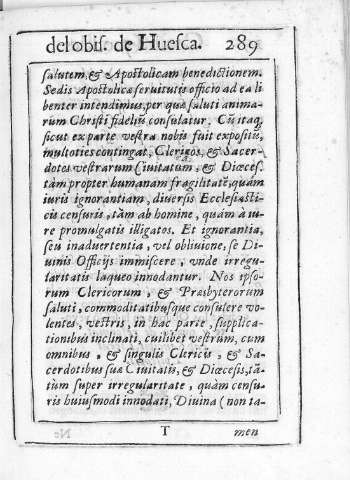 del obis. de Huesca. 289
salutem, & Apostolicam benedictionem.
Sedis Apostolicæ seruitutis officio ad ea li
benter intendimus, per quæ saluti anima-
rum Christi fideliũ consulatur. Cũ itaq;
sicut ex parte vestra nobis fuit expositũ,
multoties contingat, Clericos, & Sacer-
dotes vestrarum Ciuitatum, & Diœces.
tàm propter humanam fragilitatẽ, quàm
iuris ignorantiam, diuersis Ecclesiasti-
cis censuris, tàm ab homine, quàm à iu-
re promulgatis illigatos. Et ignorantia,
seu inaduertentia, vel obliuione, se Di-
uinis Officijs immiscere, vnde irregu-
laritatis laqueo innodantur. Nos ipso-
rum Clericorum, & Præsbyterorum
saluti, commoditatibusque consulere vo-
lentes, vestris, in hac parte, supplica-
tionibus inclinati, cuilibet vestrum, cum
omnibus, & singulis Clericis, & Sa-
cerdotibus suæ Ciuitatis, & Diœcesis, tã-
tum super irregularitate, quàm censu-
ris huiusmodi innodati, Diuina (non ta-
T men